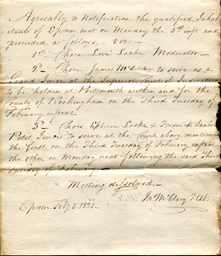 Agreeably to Notification the qualified Inhab
itants of Epsom met on Monday the 5th inst and
proceeded as follows, viz
1st Chose Levi Locke Moderator
2d Chose James to serve as a
Grand Juror at the Superior Court of
to be holden at Portsmouth within and for the
County of Rockingham on the Third Tuesday of
February instant
3d Chose Ephrim Locke &
Petit Jurors to serve at the Court above mentioned
the first on the Third Tuesday of February instant
the other on Monday next following the said Third
Tuesday of February
Meeting dissolved
Epsom Feby 5. Jn McClary T Clk